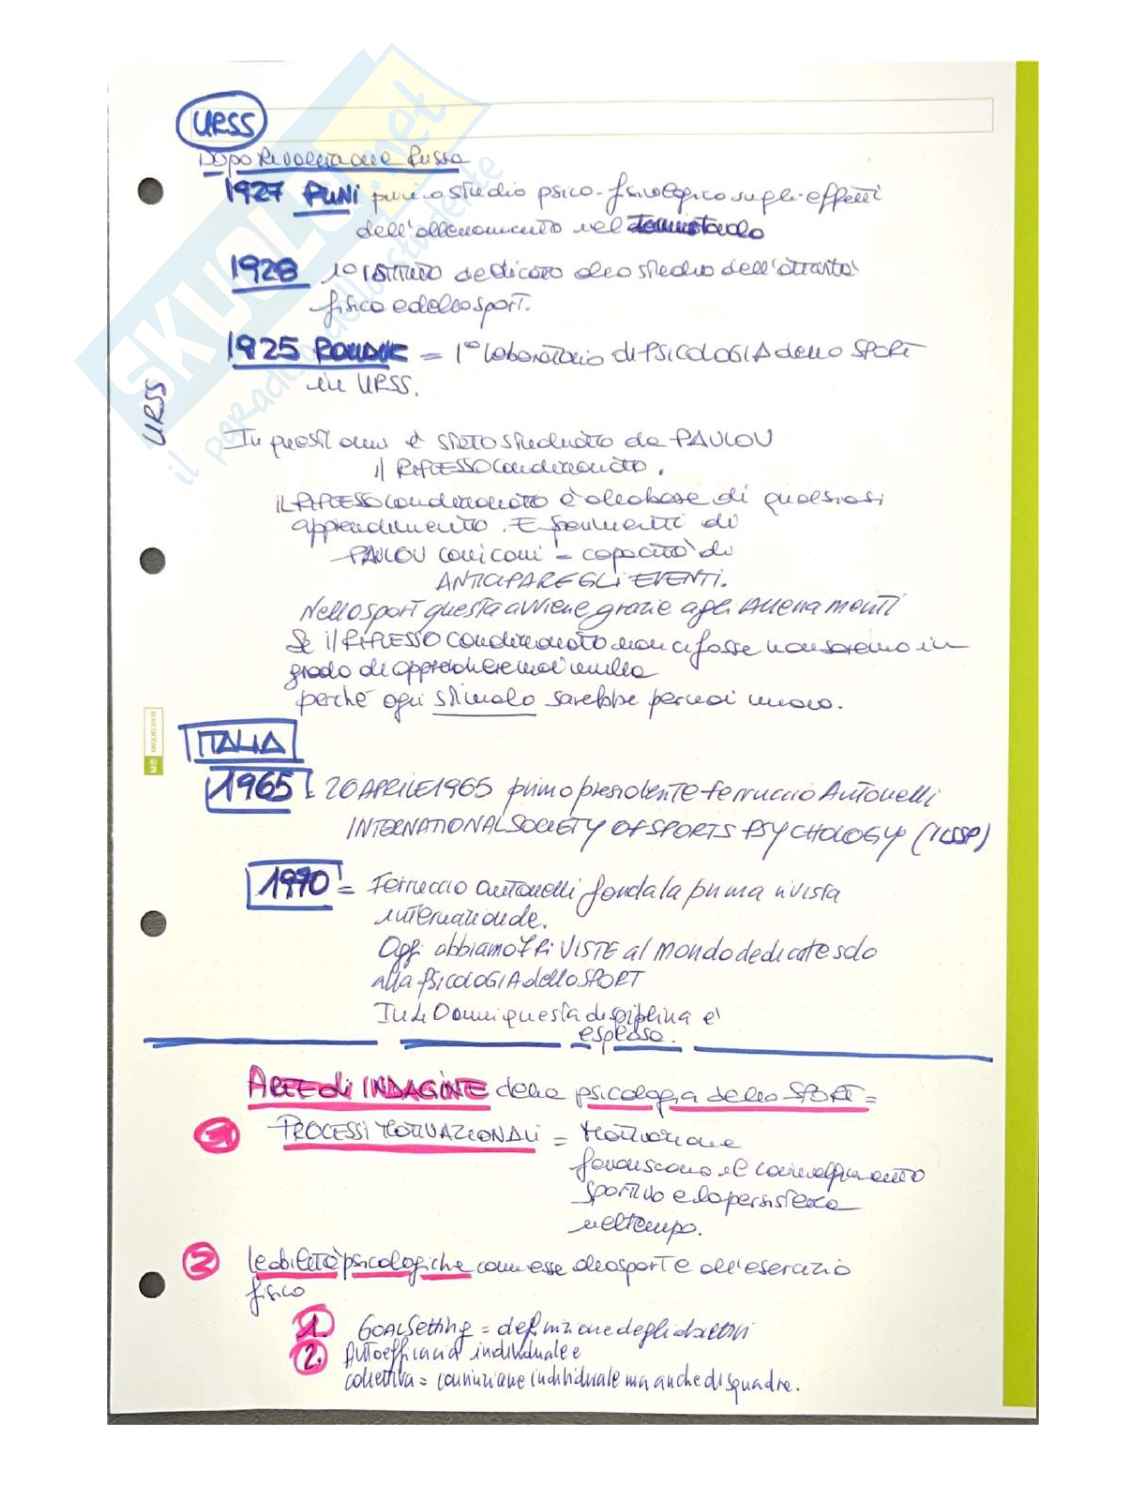 URSS
Dopo Rivoluzione Russa
1927 PUNI primo studio psico-fisiologico sugli effetti
dell'allenamento nel
1928 1o ISTITUTO dedicato allo studio dell'attività
fisica e dello sport.
1925 = 1° laboratorio di PSICOLOGIA dello SPORT
in URSS.
URSS
In questi anni è stato studiato da PAVLOV
il RIFLESSO condizionato.
IL RIFLESSO condizionato è alla base di qualsiasi
apprendimento. Esperimenti di
PAVLOV con i cani = capacità di
ANTICIPARE GLI EVENTI.
Nello sport questa avviene grazie agli Allenamenti
Se il RIFLESSO condizionato non ci fosse non saremo in
grado di apprendere mai nulla
perché ogni stimolo sarebbe per noi nuovo.
ITALIA
1965 20 APRILE 1965 primo presidente Ferruccio Antonelli
INTERNATIONAL SOCIETY OF SPORTS PSYCHOLOGY (ISSP)
1970 = Ferruccio Antonelli fonda la prima rivista
internazionale.
Oggi abbiamo 7 RIVISTE al mondo dedicate solo
alla PSICOLOGIA dello SPORT
In 40 anni questa disciplina è
esplosa.
AREE di INDAGINE della psicologia dello SPORT =
1 PROCESSI MOTIVAZIONALI = Motivazione
favoriscono il coinvolgimento
sportivo e la persistenza
nel tempo.
2 le abilità psicologiche connesse allo sport e all'esercizio
fisico
1. GOAL Setting = definizione degli obiettivi
2. Autoefficacia individuale e
collettiva = convinzione individuale ma anche di squadre.
SKUOLA.net
il paradiso dello studente